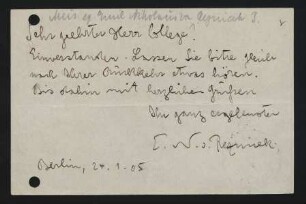 Sehr geehrter Herr College!
Einverstanden - Lassen Sie bitte gleich
nach Ihrer Rückkehr etwas hören.
Bis dahin mit herzlichen Grüßen
Ihr ganz ergebenster
E. N. v. Reznicek
Berlin, 24.1.05